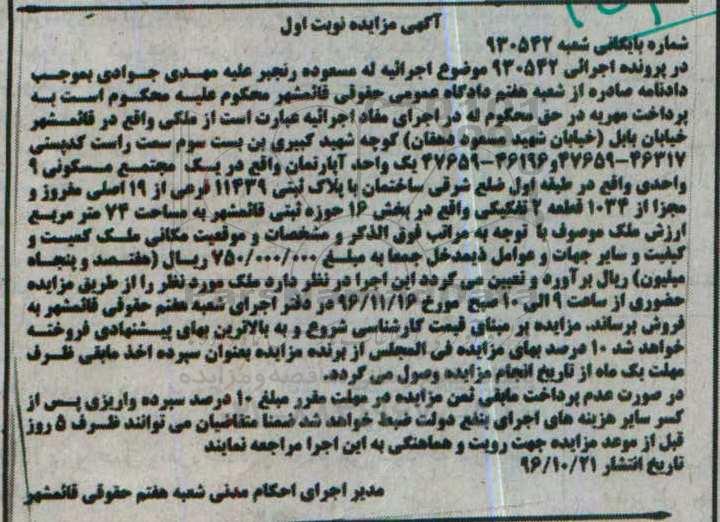 آگهی مزایده نوبت اول
شماره بایگانی شعبه ۹۳۰۵۴۲
در پرونده اجرائی ۹۳۰۵۴۲ موضوع اجرائیه له مسعوده رنجبر علیه مهدی جوادی بموجب
دادنامه صادره از شعبه هفتم دادگاه عمومی حقوقی قائمشهر محکوم علیه محکوم است به
پرداخت مهریه در حق محکوم له در اجرای مفاد اجرائیه عبارت است از ملکی واقع در قائمشهر
خیابان بابل (خیابان شهید مسعود دهقان) کوچه شهید کبیری بن بست سوم سمت راست کدپستی
۴۶۳۱۷-۴۷۶۵۹و۴۶۱۹۶-۴۷۶۵۹ یک واحد آپارتمان واقع در یک مجتمع مسکونی ۹
واحدی واقع در طبقه اول ضلع شرقی ساختمان با پلاک ثبتی ۱۱۴۳۹ فرعی از ۱۹ اصلی مفروز و
مجزا از ۱۰۳۴ قطعه ۲ تفکیکی واقع در بخش ۱۶ حوزه ثبتی قائمشهر به مساحت ۷۴ متر مربع
ارزش ملک موصوف با توجه به مراتب فوق الذکر و مشخصات و موقعیت مکانی ملک کمیت و
کیفیت و سایر جهات و عوامل ذیمدخل جمعا به مبلغ ۷۵۰/۰۰۰/۰۰۰ ریال (هفتصد و پنجاه
میلیون) ریال برآورد و تعیین می گردد این اجرا در نظر دارد ملک مورد نظر را از طریق مزایده
حضوری از ساعت ۹ الی ۱۰ صبح مورخ ۹۶/۱۱/۱۶ در دفتر اجرای شعبه هفتم حقوقی قائمشهر به
فروش برساند. مزایده بر مبنای قیمت کارشناسی شروع و به بالاترین بهای پیشنهادی فروخته
خواهد شد ۱۰ درصد بهای مزایده فی المجلس از برنده مزایده بعنوان سپرده اخذ مابقی ظرف
مهلت یک ماه از تاریخ انجام مزایده وصول می گردد.
در صورت عدم پرداخت مابقی ثمن مزایده در مهلت مقرر مبلغ ۱۰ درصد سپرده واریزی پس از
کسر سایر هزینه های اجرای بنفع دولت ضبط خواهد شد ضمنا متقاضیان می توانند ظرف ۵ روز
قبل از موعد مزایده جهت رویت و هماهنگی به این اجرا مراجعه نمایند
تاریخ انتشار ۹۶/۱۰/۲۱
مدیر اجرای احکام مدنی شعبه هفتم حقوقی قائمشهر